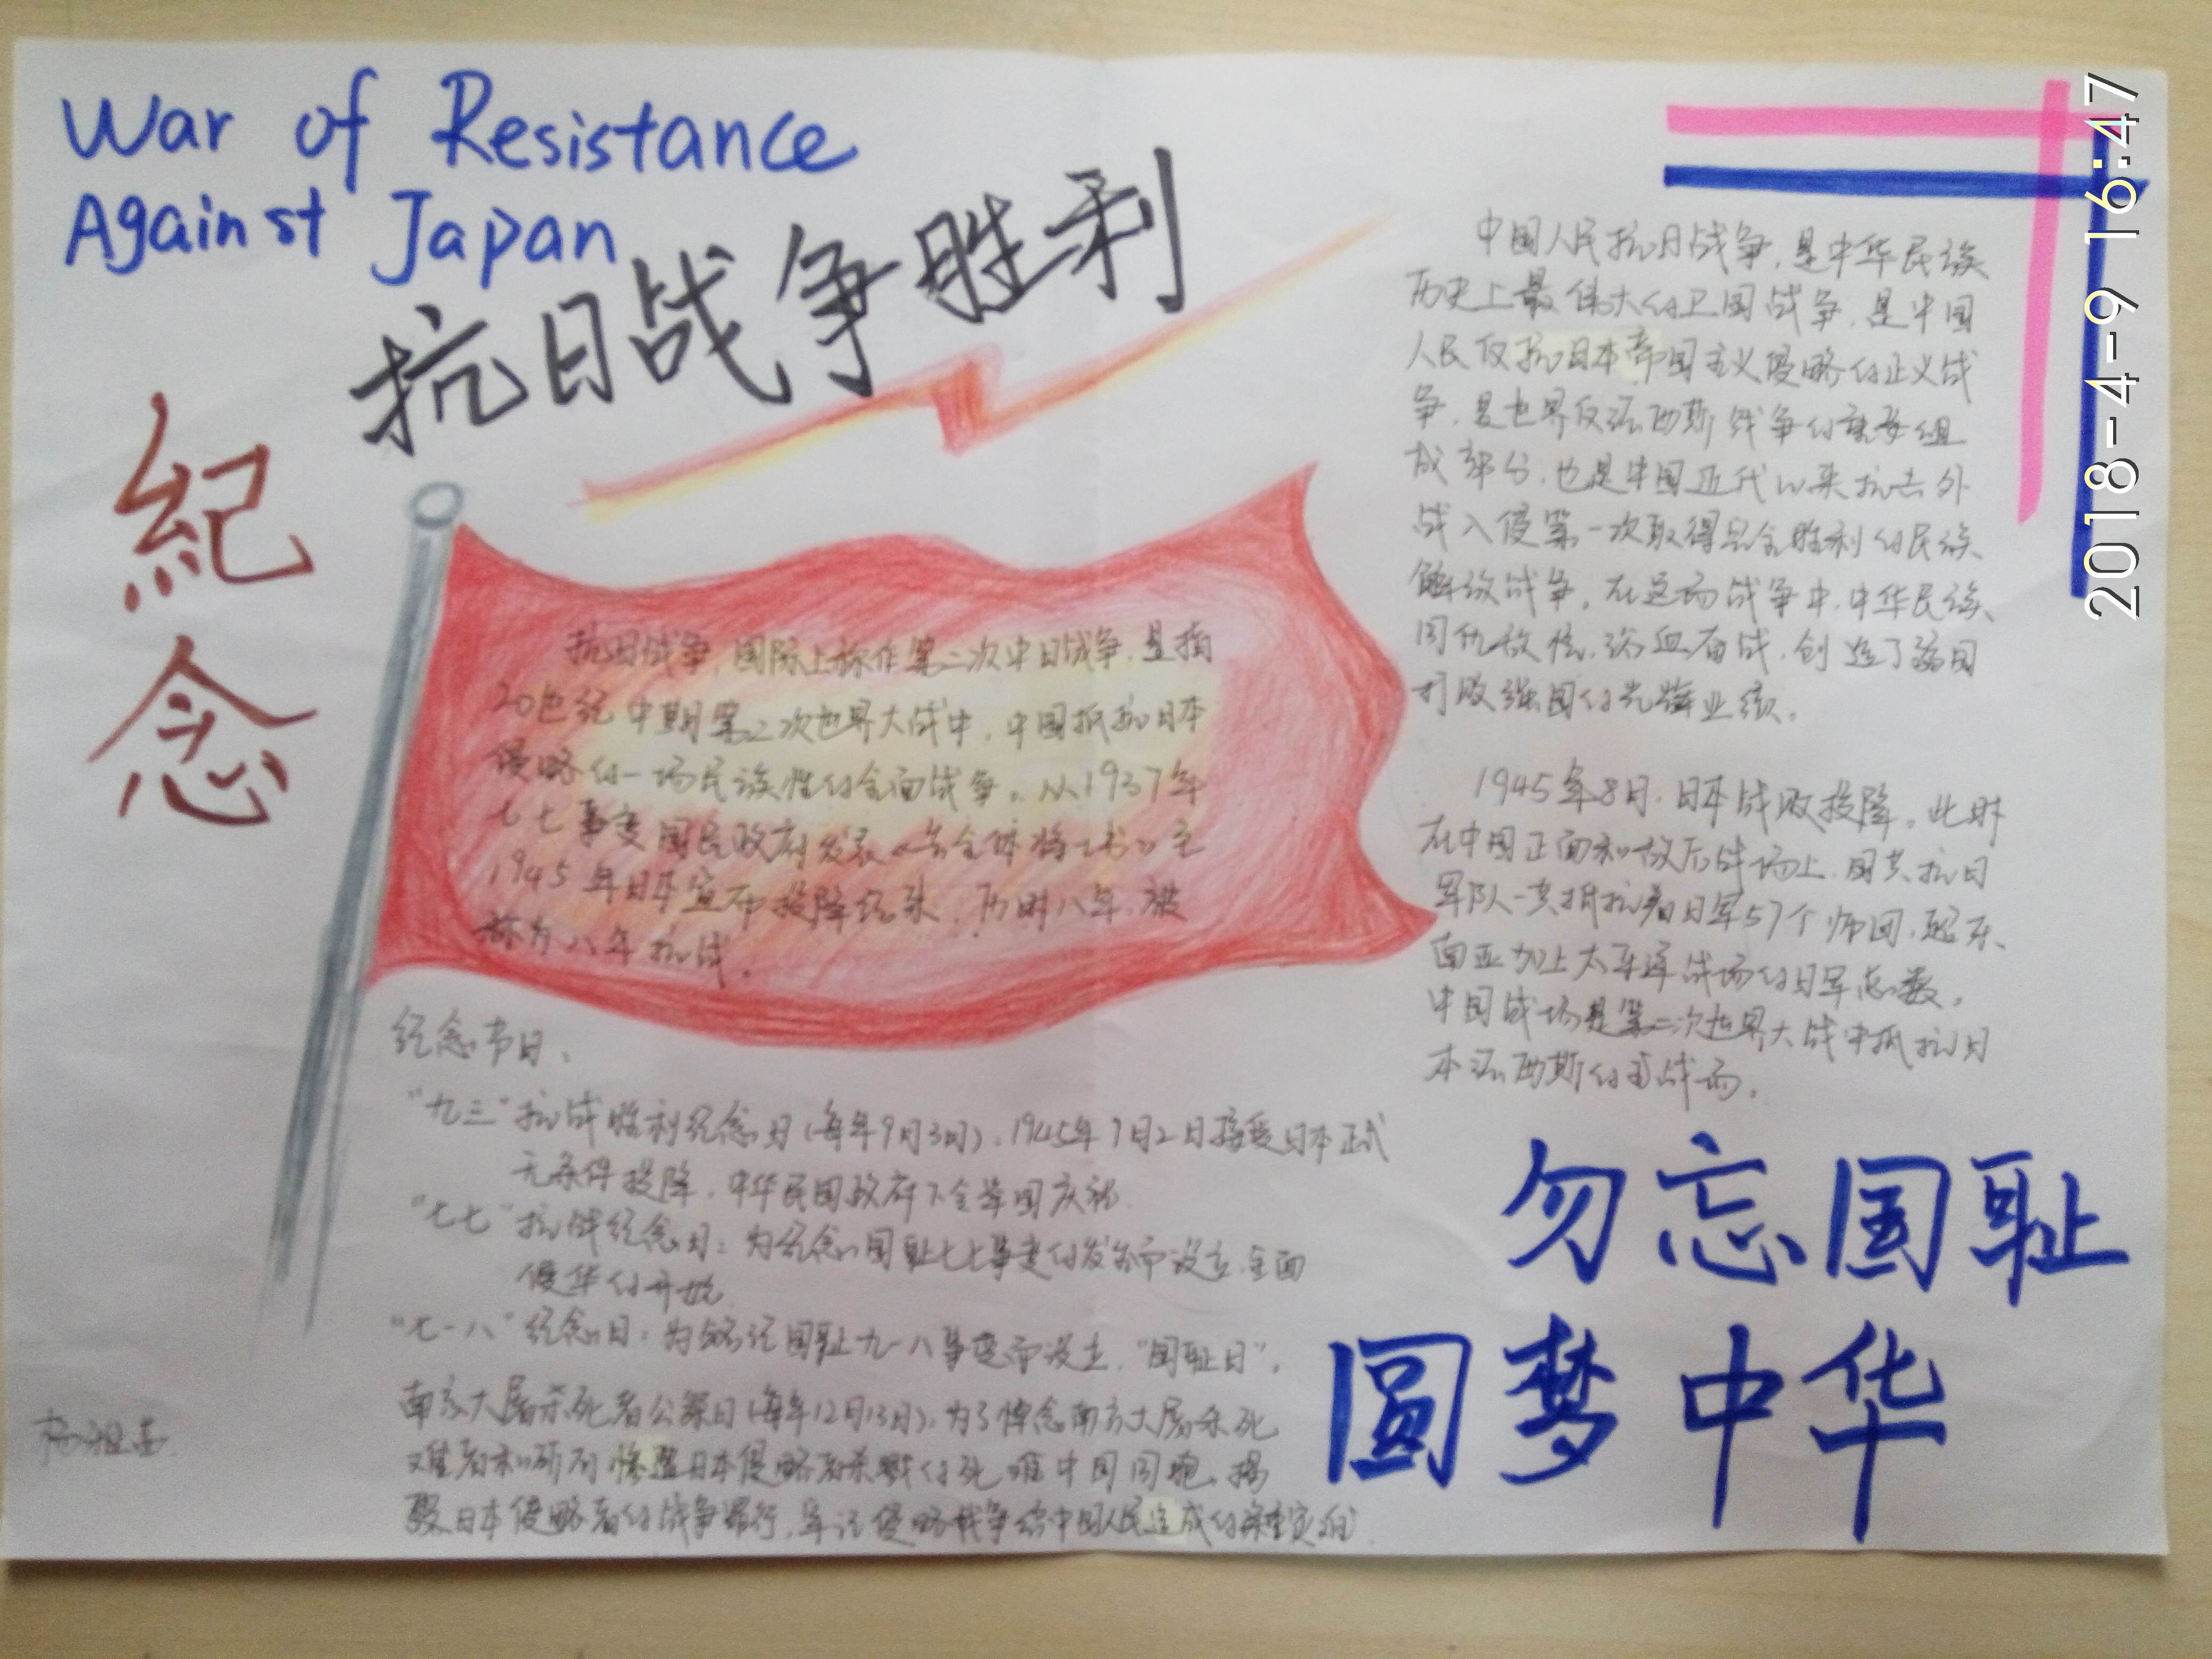 War of Resistance
Against Japan
抗日战争胜利
紀
念
抗日战争,国际上称作第二次中日战争,是指
20世纪中期第二次世界大战中,中国抵抗日本
侵略的一场民族性的全面战争。从1937年
七七事变国民政府发表《告全体将士书》至
1945年日本宣布投降结束,历时八年,被
称为八年抗战。
中国人民抗日战争,是中华民族
历史上最伟大的卫国战争,是中国
人民反抗日本帝国主义侵略的正义战
争,是世界反法西斯战争的重要组
成部分,也是中国近代以来抗击外
战入侵第一次取得完全胜利的民族
解放战争。在这场战争中,中华民族
同仇敌忾,浴血奋战,创造了弱国
打败强国的光辉业绩。
1945年8月,日本战败投降。此时
在中国正面和敌后战场上,国共抗日
军队一共抵抗着日军57个师团,超东
南亚加上太平洋战场的日军总数。
中国战场是第二次世界大战中抵抗日
本法西斯的主战场。
纪念节日:
"九三"抗战胜利纪念日(每年9月3日),1945年9月2日接受日本正式
无条件投降,中华民国政府下令举国庆祝
"七七"抗战纪念日:为纪念国耻七七事变的发生而设立,全面
侵华的开始
"七一八"纪念日:为铭记国耻九一八事变而设立,"国耻日"。
南京大屠杀死者公祭日(每年12月13日),为了悼念南京大屠杀死
难者和所有惨遭日本侵略者杀戮的死难中国同胞,揭
露日本侵略者的战争罪行,牢记侵略战争给中国人民造成的深重灾难
勿忘国耻
圆梦中华
2018-4-9 16:47